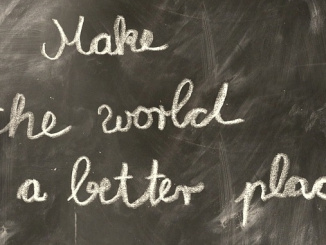 Make
the world
a better plac